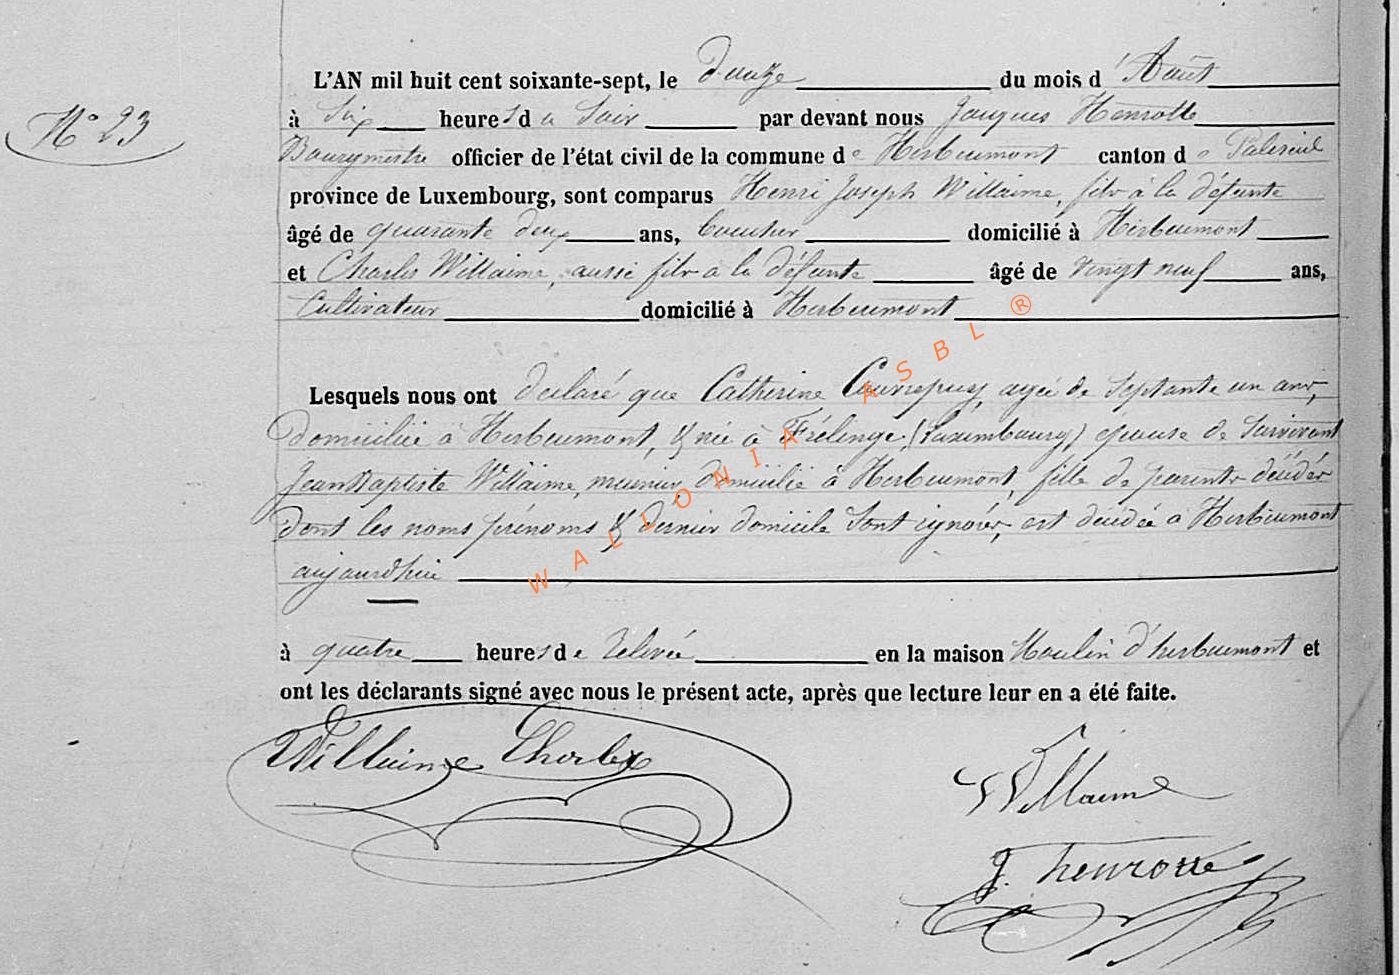 N° 23
L'AN mil huit cent soixante-sept, le douze du mois d'Août
à Six heures du Soir par devant nous Jacques Henrotte
Bourgmestre officier de l'état civil de la commune de Herbeumont canton de Paliseul
province de Luxembourg, sont comparus Henri Joseph Willaime, fils à la défunte
âgé de quarante deux ans, domicilié à Herbeumont
et Charles Willaime, aussi fils à la défunte âgé de vingt neuf ans,
Cultivateur domicilié à Herbeumont
Lesquels nous ont déclaré que Catherine agée de Septante un ans,
Domiciliée à Herbeumont, & née à Frélinge (Luxembourg) épouse de Survivant
Jean Baptiste Willaime, meunier, domicilié à Herbeumont, fille de parents décédés
dont les noms prénoms & dernier domicile sont ignorés, est décédée à Herbeumont
aujourd'hui
à quatre heures de relevée en la maison Moulin d'herbeumont et
ont les déclarants signé avec nous le présent acte, après que lecture leur en a été faite.
Willaime Charles
Willaime
J. henrotte
WALLONIA ASBL ®